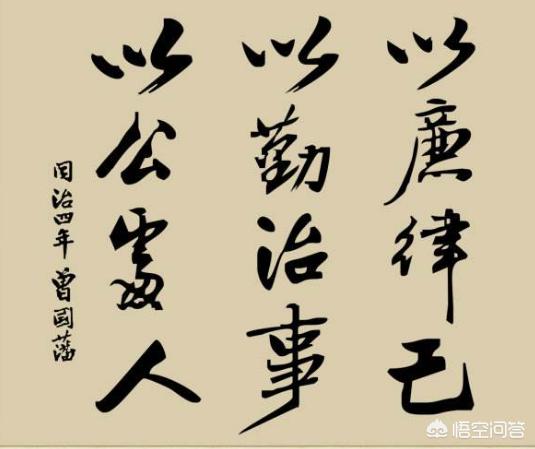 以廉律己
以勤治事
以公處人
同治四年曾國藩
悟空问答